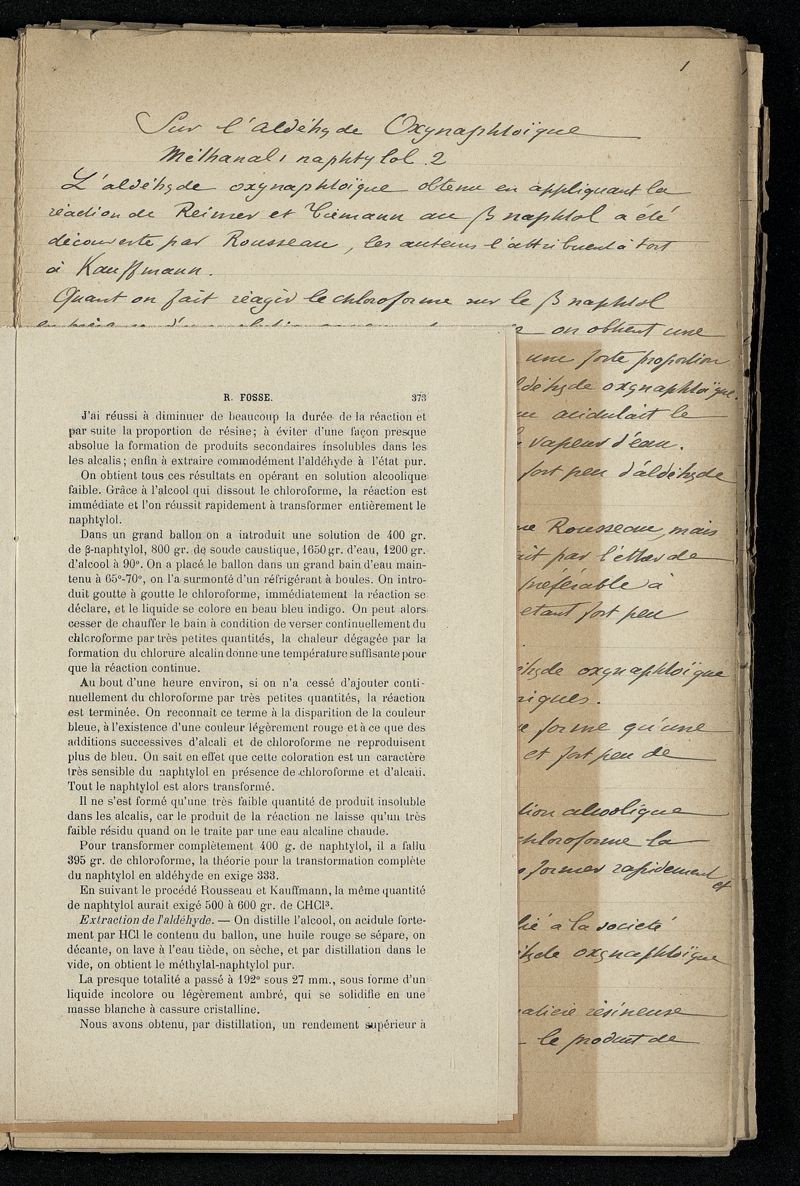 1
Sur l'aldéhyde Oxynaphtoïque
Méthanal 1 naphtylol 2
L'aldéhyde oxynaphtoïque obtenu en appliquant la
réaction de Reimer et Tiemann au β naphtol a été
découverte par Rousseau, les auteurs l'attribuent à tort
à Kauffmann.
Quant on fait réagir le chloroforme sur le β naphtol
on obtient une
une forte proportion
oxynaphtoïque.
acidulait le
vapeur d'eau.
fort peu d'aldéhyde
Rousseau, mais
par l'éther de
préférable à
etant fort peu
oxynaphtoïque
forme qu'une
et fort peu de
alcoolique
chloroforme la
former rapidement et
à la société
oxynaphtoïque
résineuse
le produit de
R. FOSSE. 373
J'ai réussi à diminuer de beaucoup la durée de la réaction et
par suite la proportion de résine; à éviter d'une façon presque
absolue la formation de produits secondaires insolubles dans les
les alcalis; enfin à extraire commodément l'aldéhyde à l'état pur.
On obtient tous ces résultats en opérant en solution alcoolique
faible. Grâce à l'alcool qui dissout le chloroforme, la réaction est
immédiate et l'on réussit rapidement à transformer entièrement le
naphtylol.
Dans un grand ballon on a introduit une solution de 400 gr.
de β-naphtylol, 800 gr. de soude caustique, 1650 gr. d'eau, 1200 gr.
d'alcool à 90°. On a placé le ballon dans un grand bain d'eau main-
tenu à 65°-70°, on l'a surmonté d'un réfrigérant à boules. On intro-
duit goutte à goutte le chloroforme, immédiatement la réaction se
déclare, et le liquide se colore en beau bleu indigo. On peut alors
cesser de chauffer le bain à condition de verser continuellement du
chloroforme par très petites quantités, la chaleur dégagée par la
formation du chlorure alcalin donne une température suffisante pour
que la réaction continue.
Au bout d'une heure environ, si on n'a cessé d'ajouter conti-
nuellement du chloroforme par très petites quantités, la réaction
est terminée. On reconnait ce terme à la disparition de la couleur
bleue, à l'existence d'une couleur légèrement rouge et à ce que des
additions successives d'alcali et de chloroforme ne reproduisent
plus de bleu. On sait en effet que cette coloration est un caractère
très sensible du naphtylol en présence de chloroforme et d'alcali.
Tout le naphtylol est alors transformé.
Il ne s'est formé qu'une très faible quantité de produit insoluble
dans les alcalis, car le produit de la réaction ne laisse qu'un très
faible résidu quand on le traite par une eau alcaline chaude.
Pour transformer complètement 400 g. de naphtylol, il a fallu
395 gr. de chloroforme, la théorie pour la transformation complète
du naphtylol en aldéhyde en exige 333.
En suivant le procédé Rousseau et Kauffmann, la même quantité
de naphtylol aurait exigé 500 à 600 gr. de CHCl³.
Extraction de l'aldéhyde. — On distille l'alcool, on acidule forte-
ment par HCl le contenu du ballon, une huile rouge se sépare, on
décante, on lave à l'eau tiède, on sèche, et par distillation dans le
vide, on obtient le méthylal-naphtylol pur.
La presque totalité a passé à 192° sous 27 mm., sous forme d'un
liquide incolore ou légèrement ambré, qui se solidifie en une
masse blanche à cassure cristalline.
Nous avons obtenu, par distillation, un rendement supérieur à